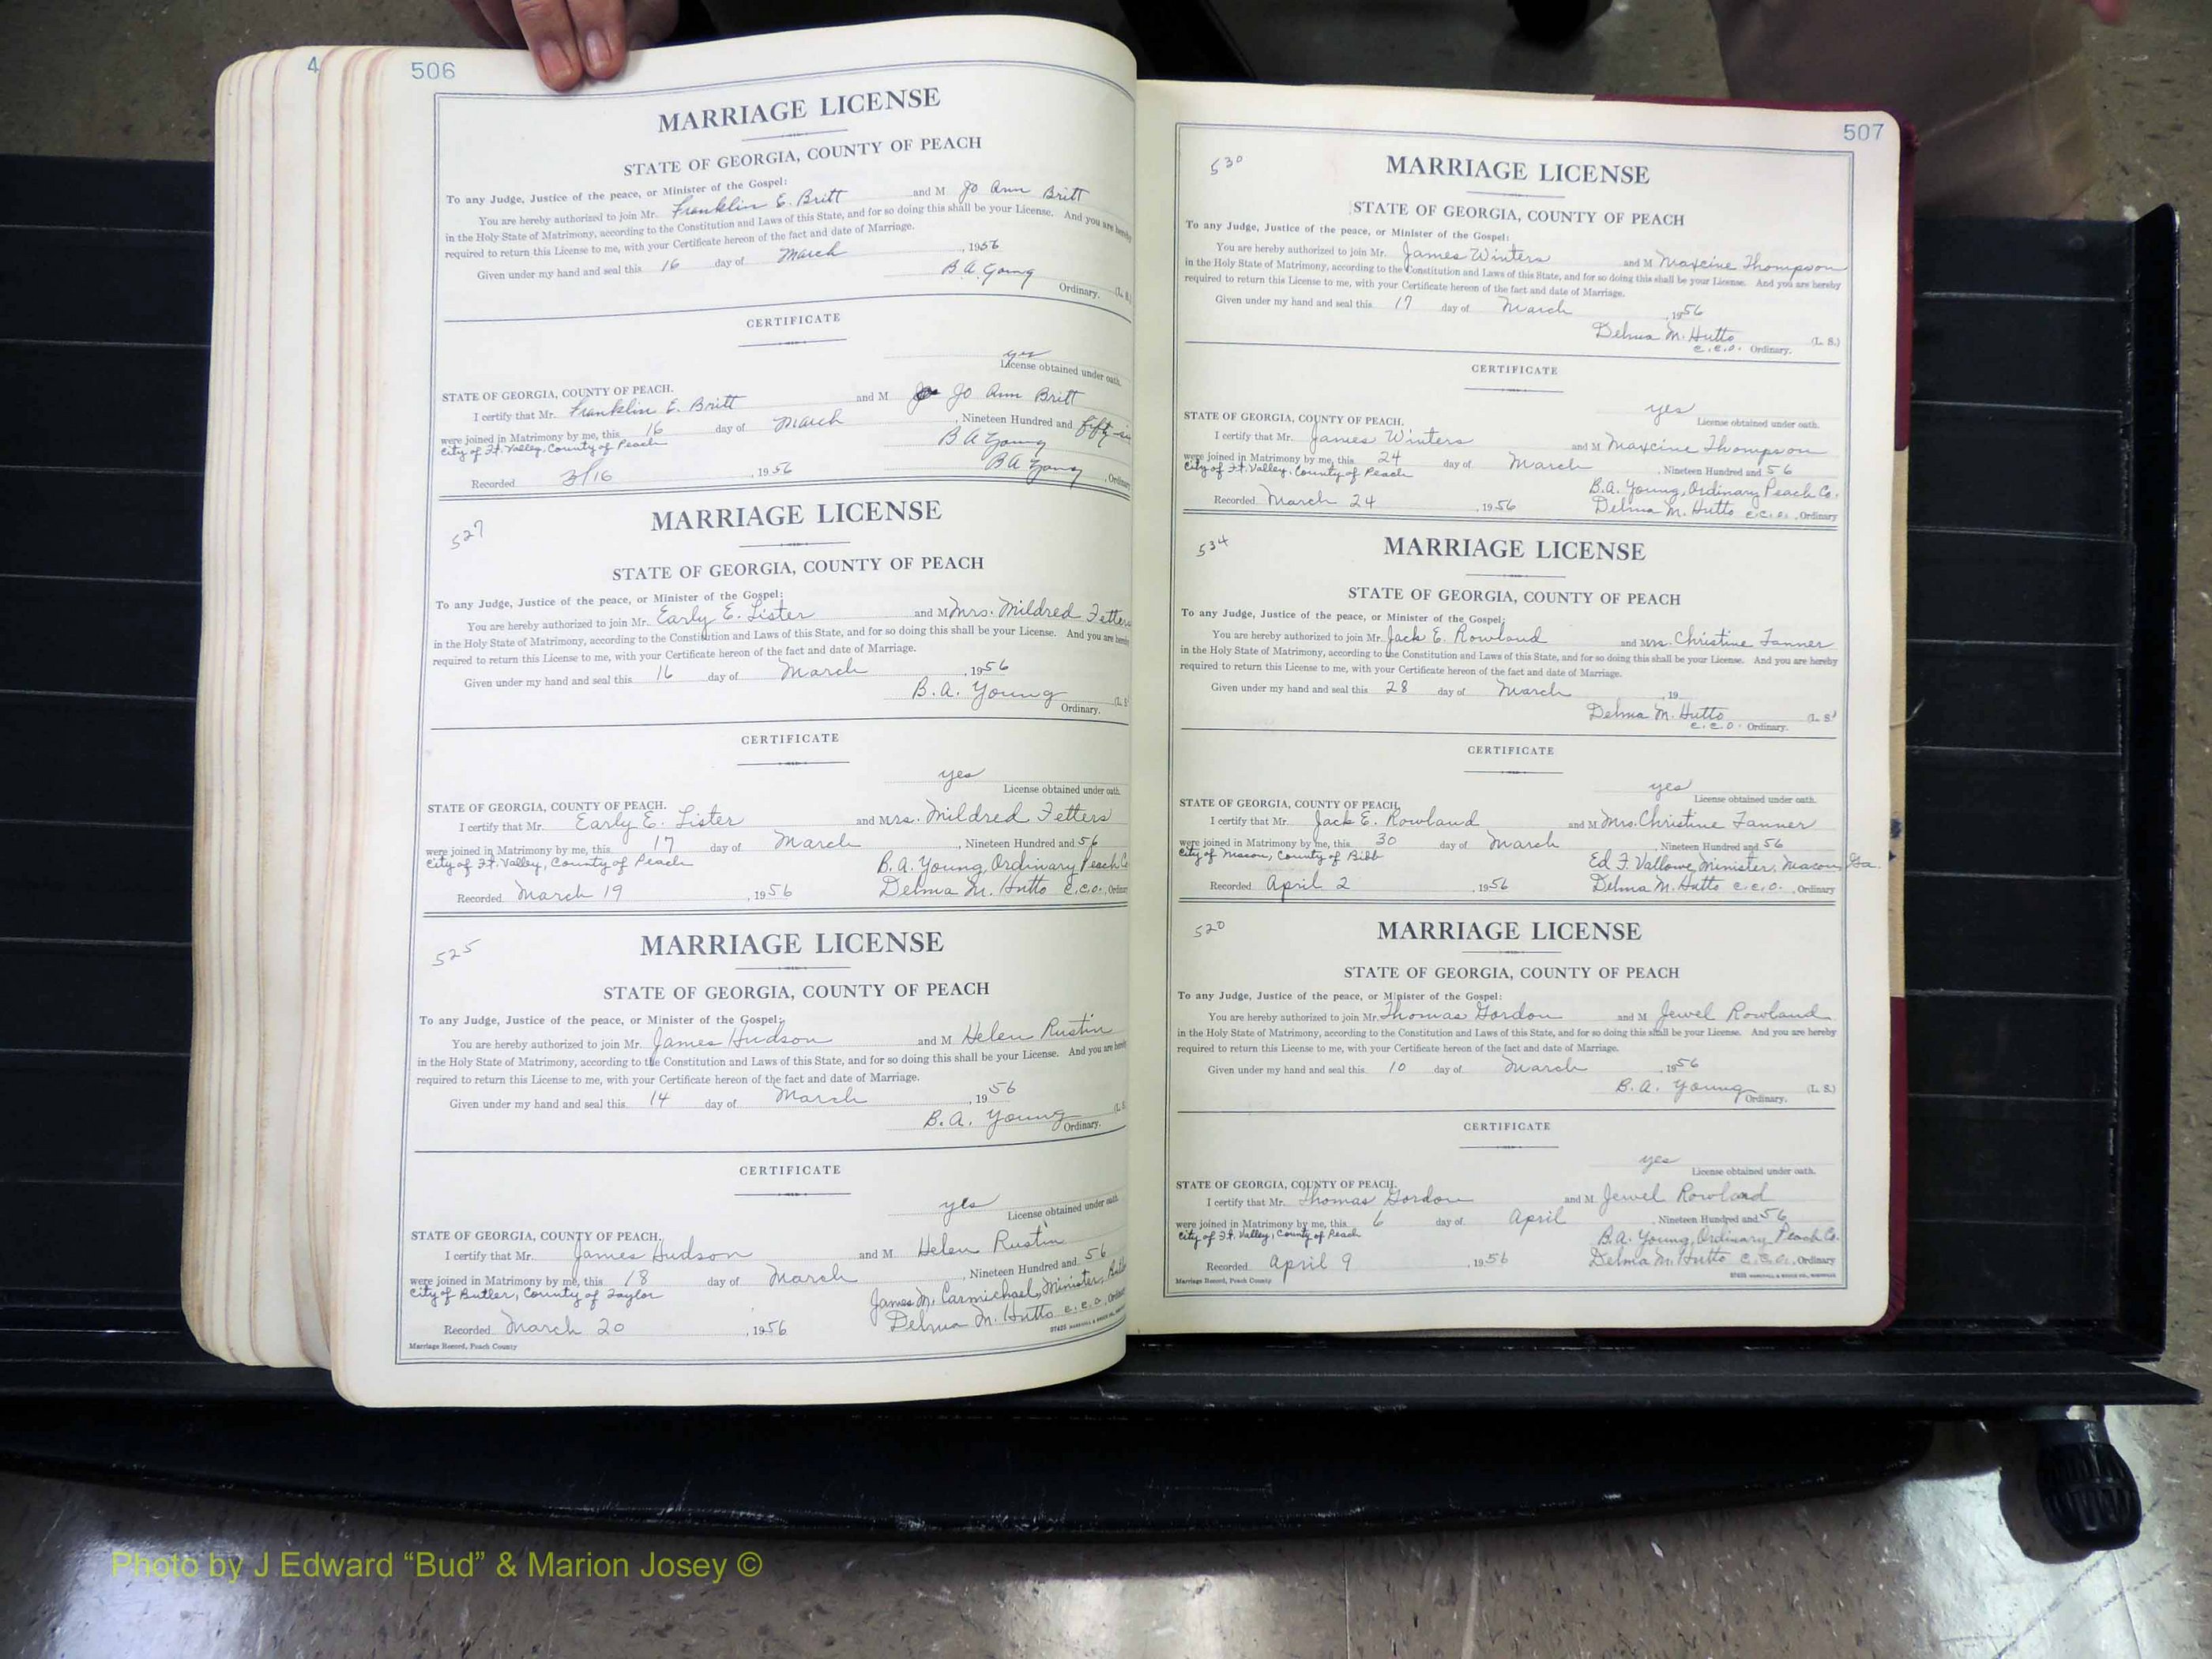 4
506
MARRIAGE LICENSE
STATE OF GEORGIA, COUNTY OF PEACH
To any Judge, Justice of the peace, or Minister of the Gospel:
You are hereby authorized to join Mr. Franklin E. Britt and M Jo Ann Britt
in the Holy State of Matrimony, according to the Constitution and Laws of this State, and for so doing this shall be your License. And you are hereby
required to return this License to me, with your Certificate hereon of the fact and date of Marriage.
Given under my hand and seal this 16 day of March, 1956
B A Young
Ordinary. (L. S.)
CERTIFICATE
yes
License obtained under oath.
STATE OF GEORGIA, COUNTY OF PEACH.
I certify that Mr. Franklin E. Britt and M Jo Ann Britt
were joined in Matrimony by me, this 16 day of March, Nineteen Hundred and fifty-six
City of Ft. Valley, County of Peach B A Young
Recorded 3/16, 1956 B A Young, Ordin
527
MARRIAGE LICENSE
STATE OF GEORGIA, COUNTY OF PEACH
To any Judge, Justice of the peace, or Minister of the Gospel:
You are hereby authorized to join Mr. Early E. Lister and Mrs. Mildred Fetters
in the Holy State of Matrimony, according to the Constitution and Laws of this State, and for so doing this shall be your License. And you are hereby
required to return this License to me, with your Certificate hereon of the fact and date of Marriage.
Given under my hand and seal this 16 day of March, 1956
B. A. Young (L. S
Ordinary.
CERTIFICATE
yes
License obtained under oath.
STATE OF GEORGIA, COUNTY OF PEACH.
I certify that Mr. Early E. Lister and Mrs. Mildred Fetters
were joined in Matrimony by me, this 17 day of March, Nineteen Hundred and 56
City of Ft. Valley, County of Peach B. A. Young, Ordinary Peach Co
Recorded March 19, 1956 Delma M. Hutto C.C.O., Ordinary
525
MARRIAGE LICENSE
STATE OF GEORGIA, COUNTY OF PEACH
To any Judge, Justice of the peace, or Minister of the Gospel:
You are hereby authorized to join Mr. James Hudson and M Helen Rustin
in the Holy State of Matrimony, according to the Constitution and Laws of this State, and for so doing this shall be your License. And you are hereby
required to return this License to me, with your Certificate hereon of the fact and date of Marriage.
Given under my hand and seal this 14 day of March, 1956
B. A. Young (L. S.
Ordinary.
CERTIFICATE
yes
License obtained under oath.
STATE OF GEORGIA, COUNTY OF PEACH.
I certify that Mr. James Hudson and M Helen Rustin
were joined in Matrimony by me, this 18 day of March, Nineteen Hundred and 56
City of Butler, County of Taylor James M. Carmichael, Minister,
Recorded March 20, 1956 Delma M. Hutto C.C.O., Ordinary
Marriage Record, Peach County
507
530
MARRIAGE LICENSE
STATE OF GEORGIA, COUNTY OF PEACH
To any Judge, Justice of the peace, or Minister of the Gospel:
You are hereby authorized to join Mr. James Winters and M Maxcine Thompson
in the Holy State of Matrimony, according to the Constitution and Laws of this State, and for so doing this shall be your License. And you are hereby
required to return this License to me, with your Certificate hereon of the fact and date of Marriage.
Given under my hand and seal this 17 day of March, 1956
Delma M. Hutto (L. S.)
C.C.O. Ordinary.
CERTIFICATE
yes
License obtained under oath.
STATE OF GEORGIA, COUNTY OF PEACH.
I certify that Mr. James Winters and M Maxcine Thompson
were joined in Matrimony by me, this 24 day of March, Nineteen Hundred and 56
City of Ft. Valley, County of Peach B.A. Young, Ordinary Peach Co.
Recorded March 24, 1956 Delma M. Hutto C.C.O., Ordinary
534
MARRIAGE LICENSE
STATE OF GEORGIA, COUNTY OF PEACH
To any Judge, Justice of the peace, or Minister of the Gospel:
You are hereby authorized to join Mr. Jack E. Rowland and Mrs. Christine Tanner
in the Holy State of Matrimony, according to the Constitution and Laws of this State, and for so doing this shall be your License. And you are hereby
required to return this License to me, with your Certificate hereon of the fact and date of Marriage.
Given under my hand and seal this 28 day of March, 19
Delma M. Hutto (L. S.)
C.C.O. Ordinary.
CERTIFICATE
yes
License obtained under oath.
STATE OF GEORGIA, COUNTY OF PEACH.
I certify that Mr. Jack E. Rowland and M Mrs. Christine Tanner
were joined in Matrimony by me, this 30 day of March, Nineteen Hundred and 56
City of Macon, County of Bibb Ed F. Vallowe, Minister, Macon, Ga.
Recorded April 2, 1956 Delma M. Hutto C.C.O., Ordinary
520
MARRIAGE LICENSE
STATE OF GEORGIA, COUNTY OF PEACH
To any Judge, Justice of the peace, or Minister of the Gospel:
You are hereby authorized to join Mr. Thomas Gordon and M Jewel Rowland
in the Holy State of Matrimony, according to the Constitution and Laws of this State, and for so doing this shall be your License. And you are hereby
required to return this License to me, with your Certificate hereon of the fact and date of Marriage.
Given under my hand and seal this 10 day of March, 1956
B. A. Young (L. S.)
Ordinary.
CERTIFICATE
yes
License obtained under oath.
STATE OF GEORGIA, COUNTY OF PEACH.
I certify that Mr. Thomas Gordon and M Jewel Rowland
were joined in Matrimony by me, this 6 day of April, Nineteen Hundred and 56
City of Ft. Valley, County of Peach B.A. Young, Ordinary Peach Co.
Recorded April 9, 1956 Delma M. Hutto C.C.O., Ordinary
Marriage Record, Peach County
Photo by J Edward "Bud" & Marion Josey ©